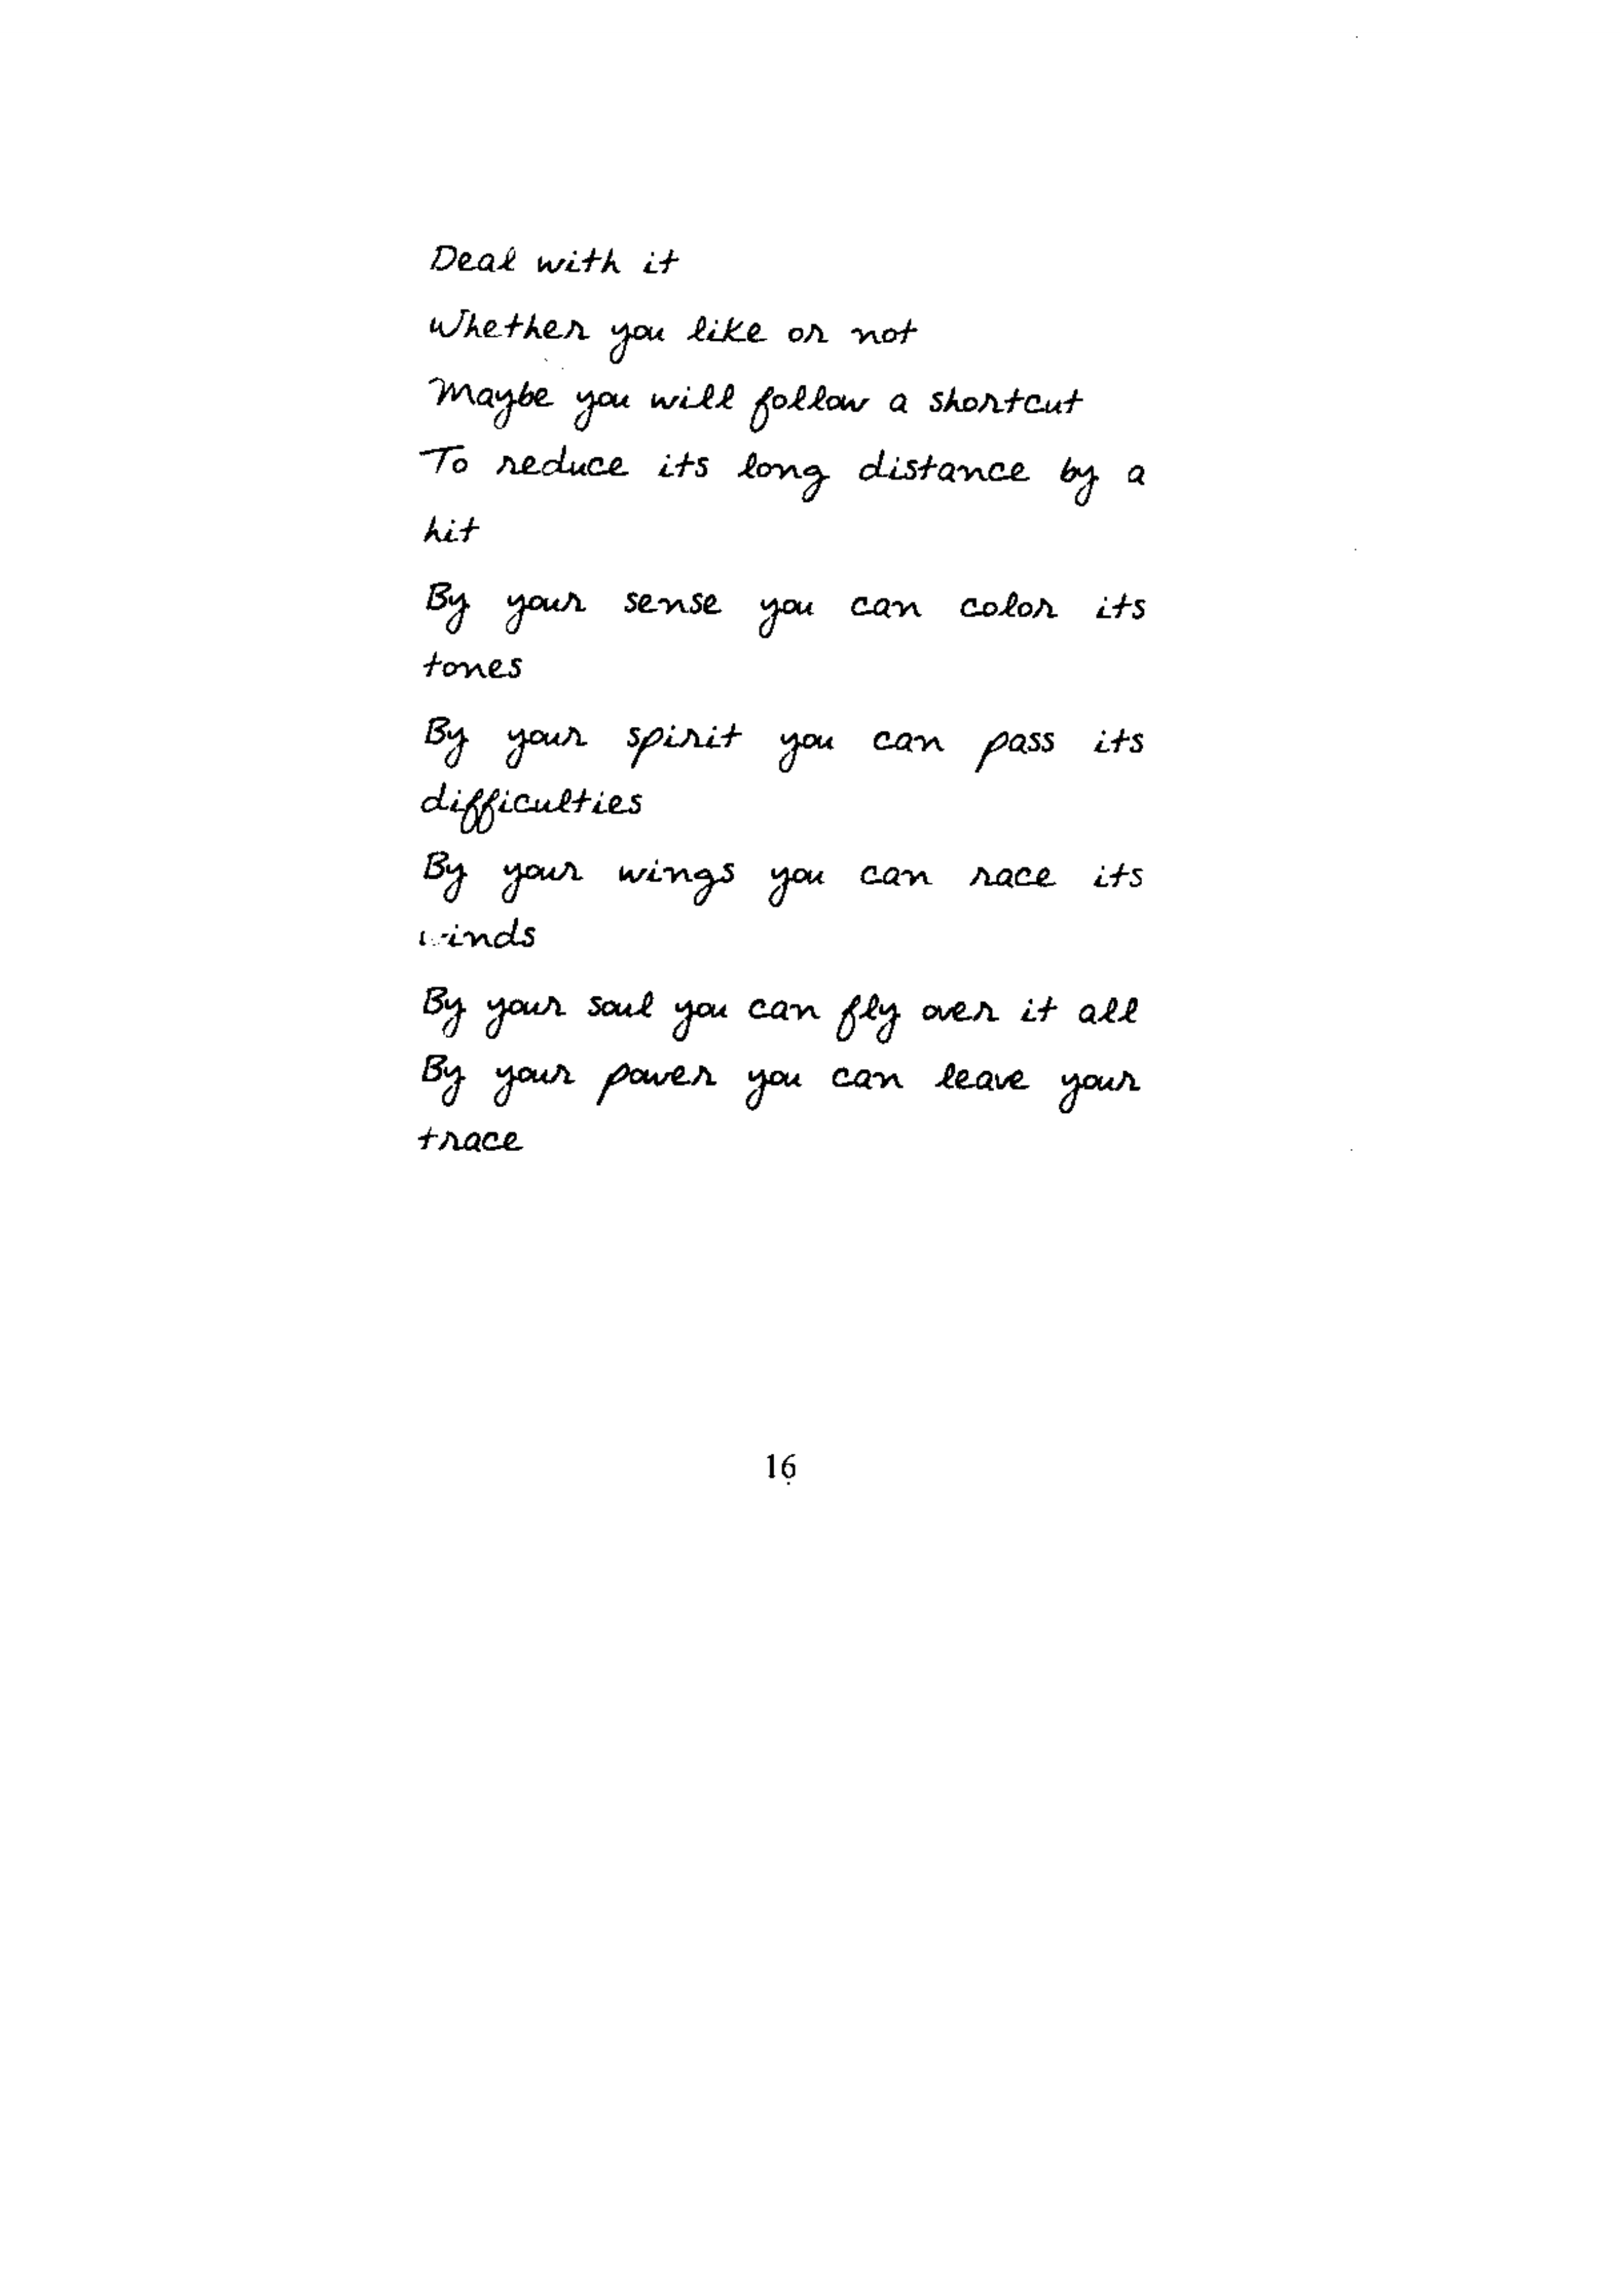 Deal with it
Whether you like or not
Maybe you will follow a shortcut
To reduce its long distance by a
hit
By your sense you can color its
tones
By your spirit you can pass its
difficulties
By your wings you can race its
winds
By your soul you can fly over it all
By your power you can leave your
trace
16